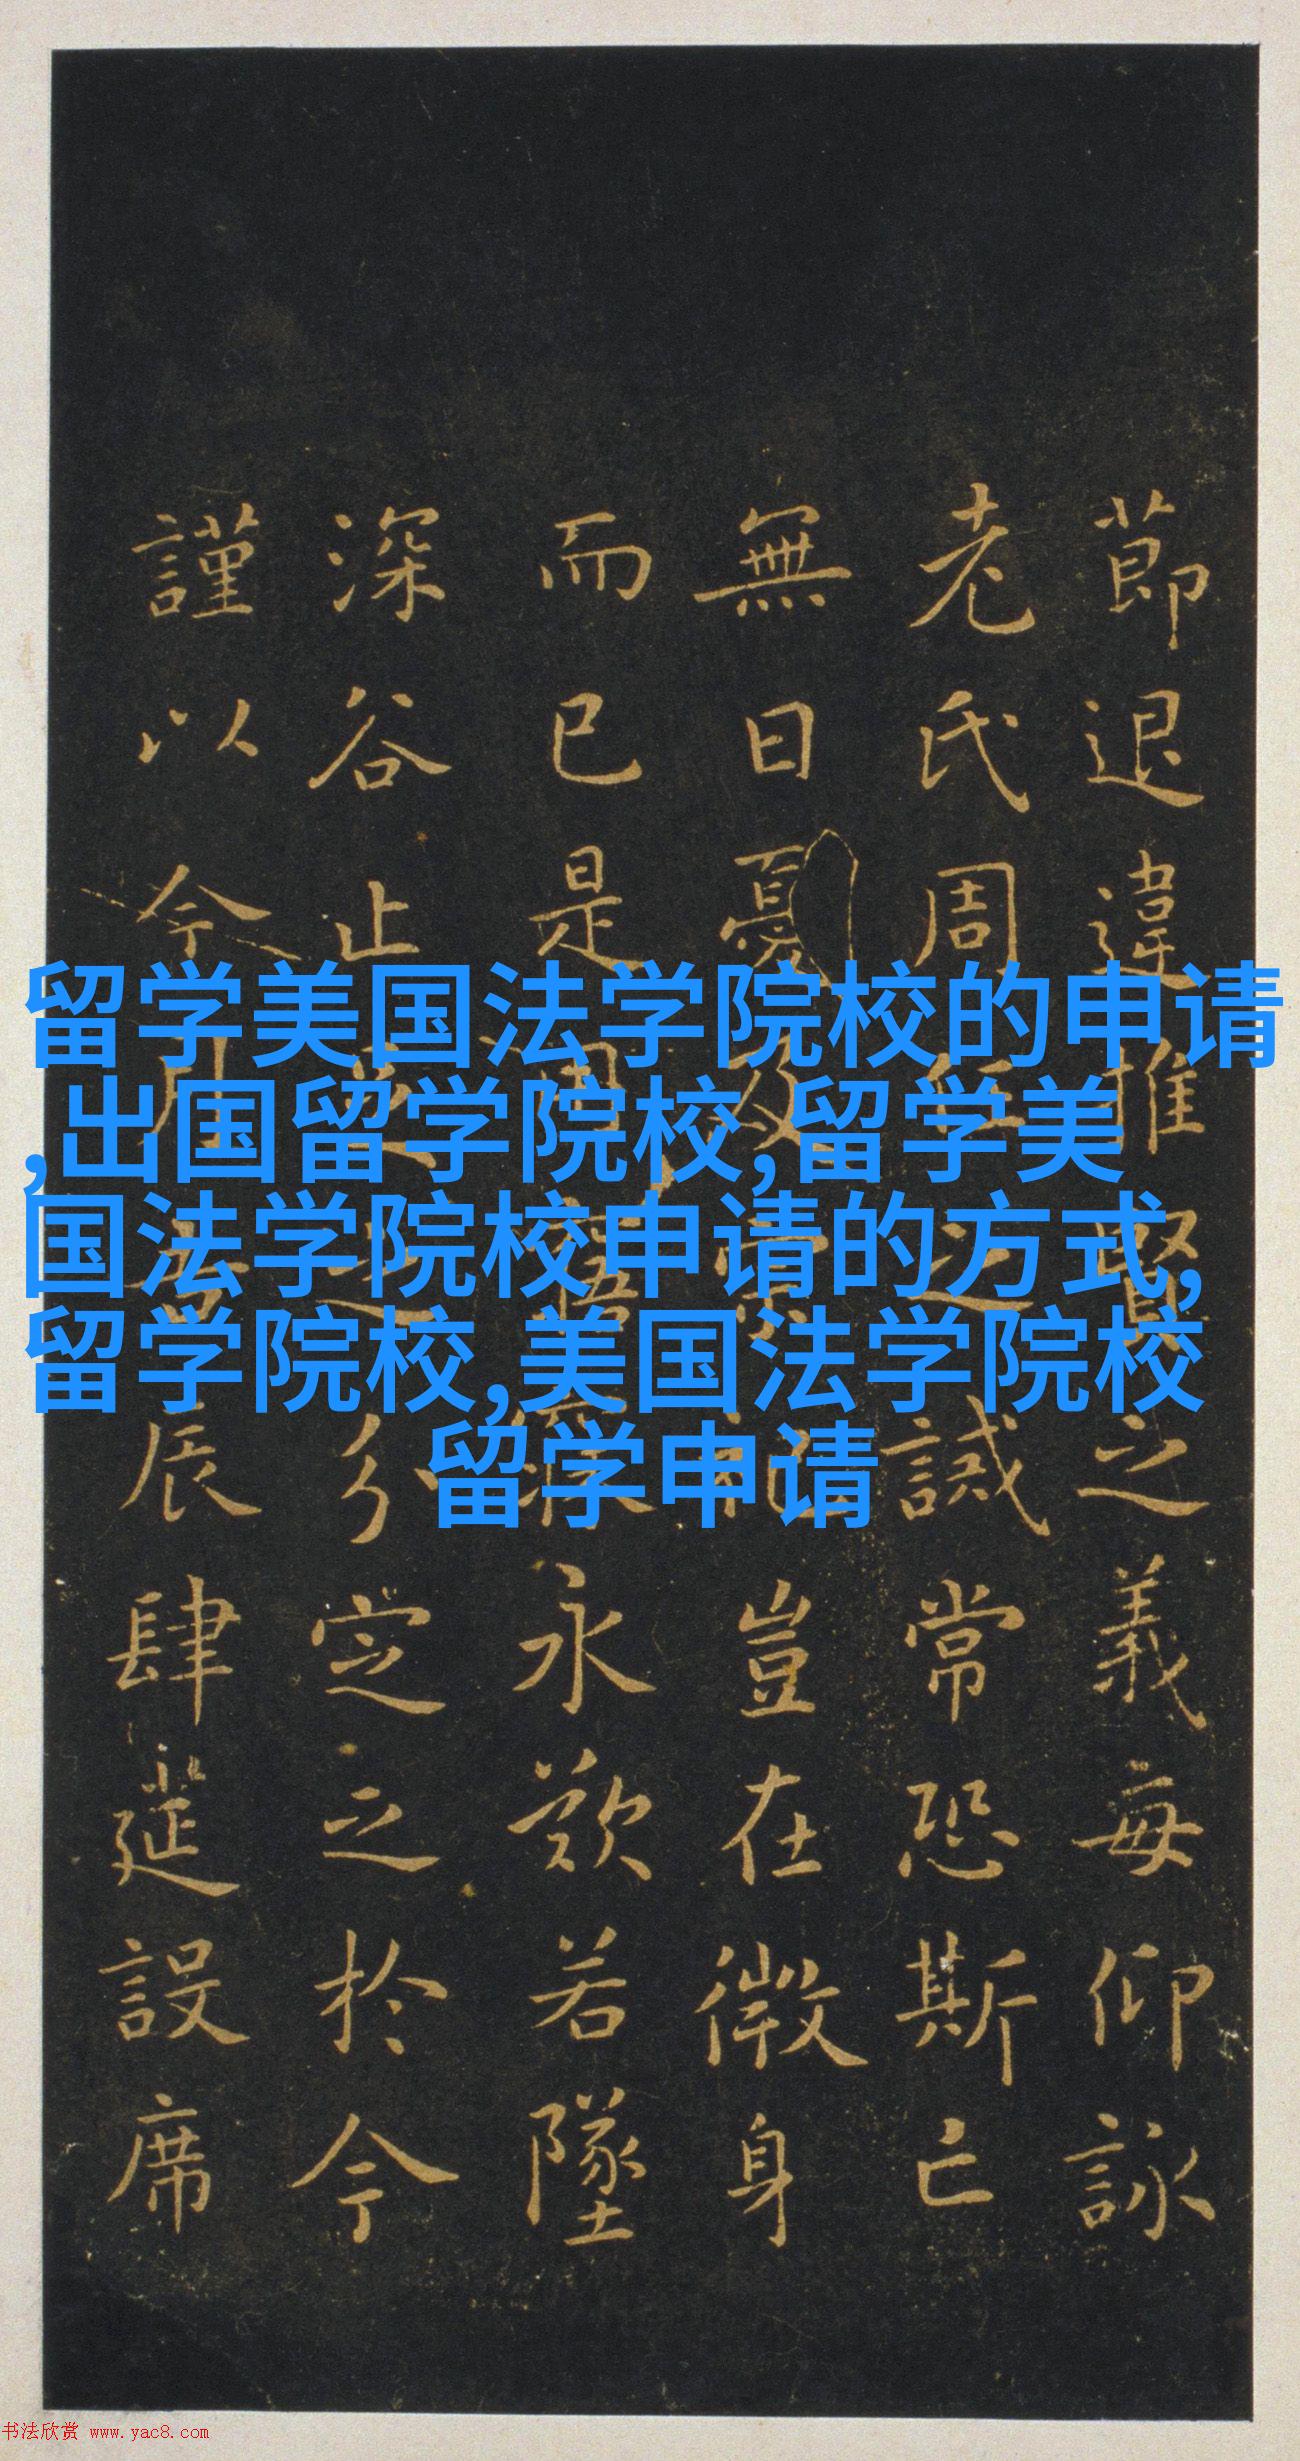 留学美国法学院校的申请
,出国留学院校,留学美
国法学院校申请的方式,
留学院校,美国法学院校
留学申请
節退違推賢之義每仰詠
老氏周任之誡常恐斯亡
無日憂及宗祀豈在微身
而已是用寤寐永歎若墜
深谷止足之分定之於今
謹以今月吉辰肆筵設席
书法欣赏 www.yac8.com